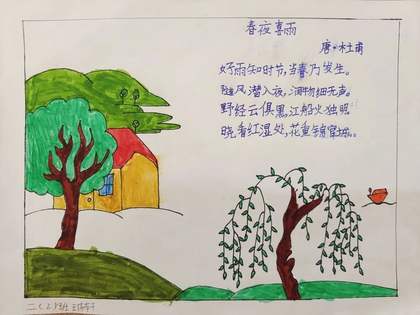 春夜喜雨
唐·杜甫
好雨知时节,当春乃发生。
随风潜入夜,润物细无声。
野经云俱黑,江船火独明
晓看红湿处,花重锦官城。
二(2)班